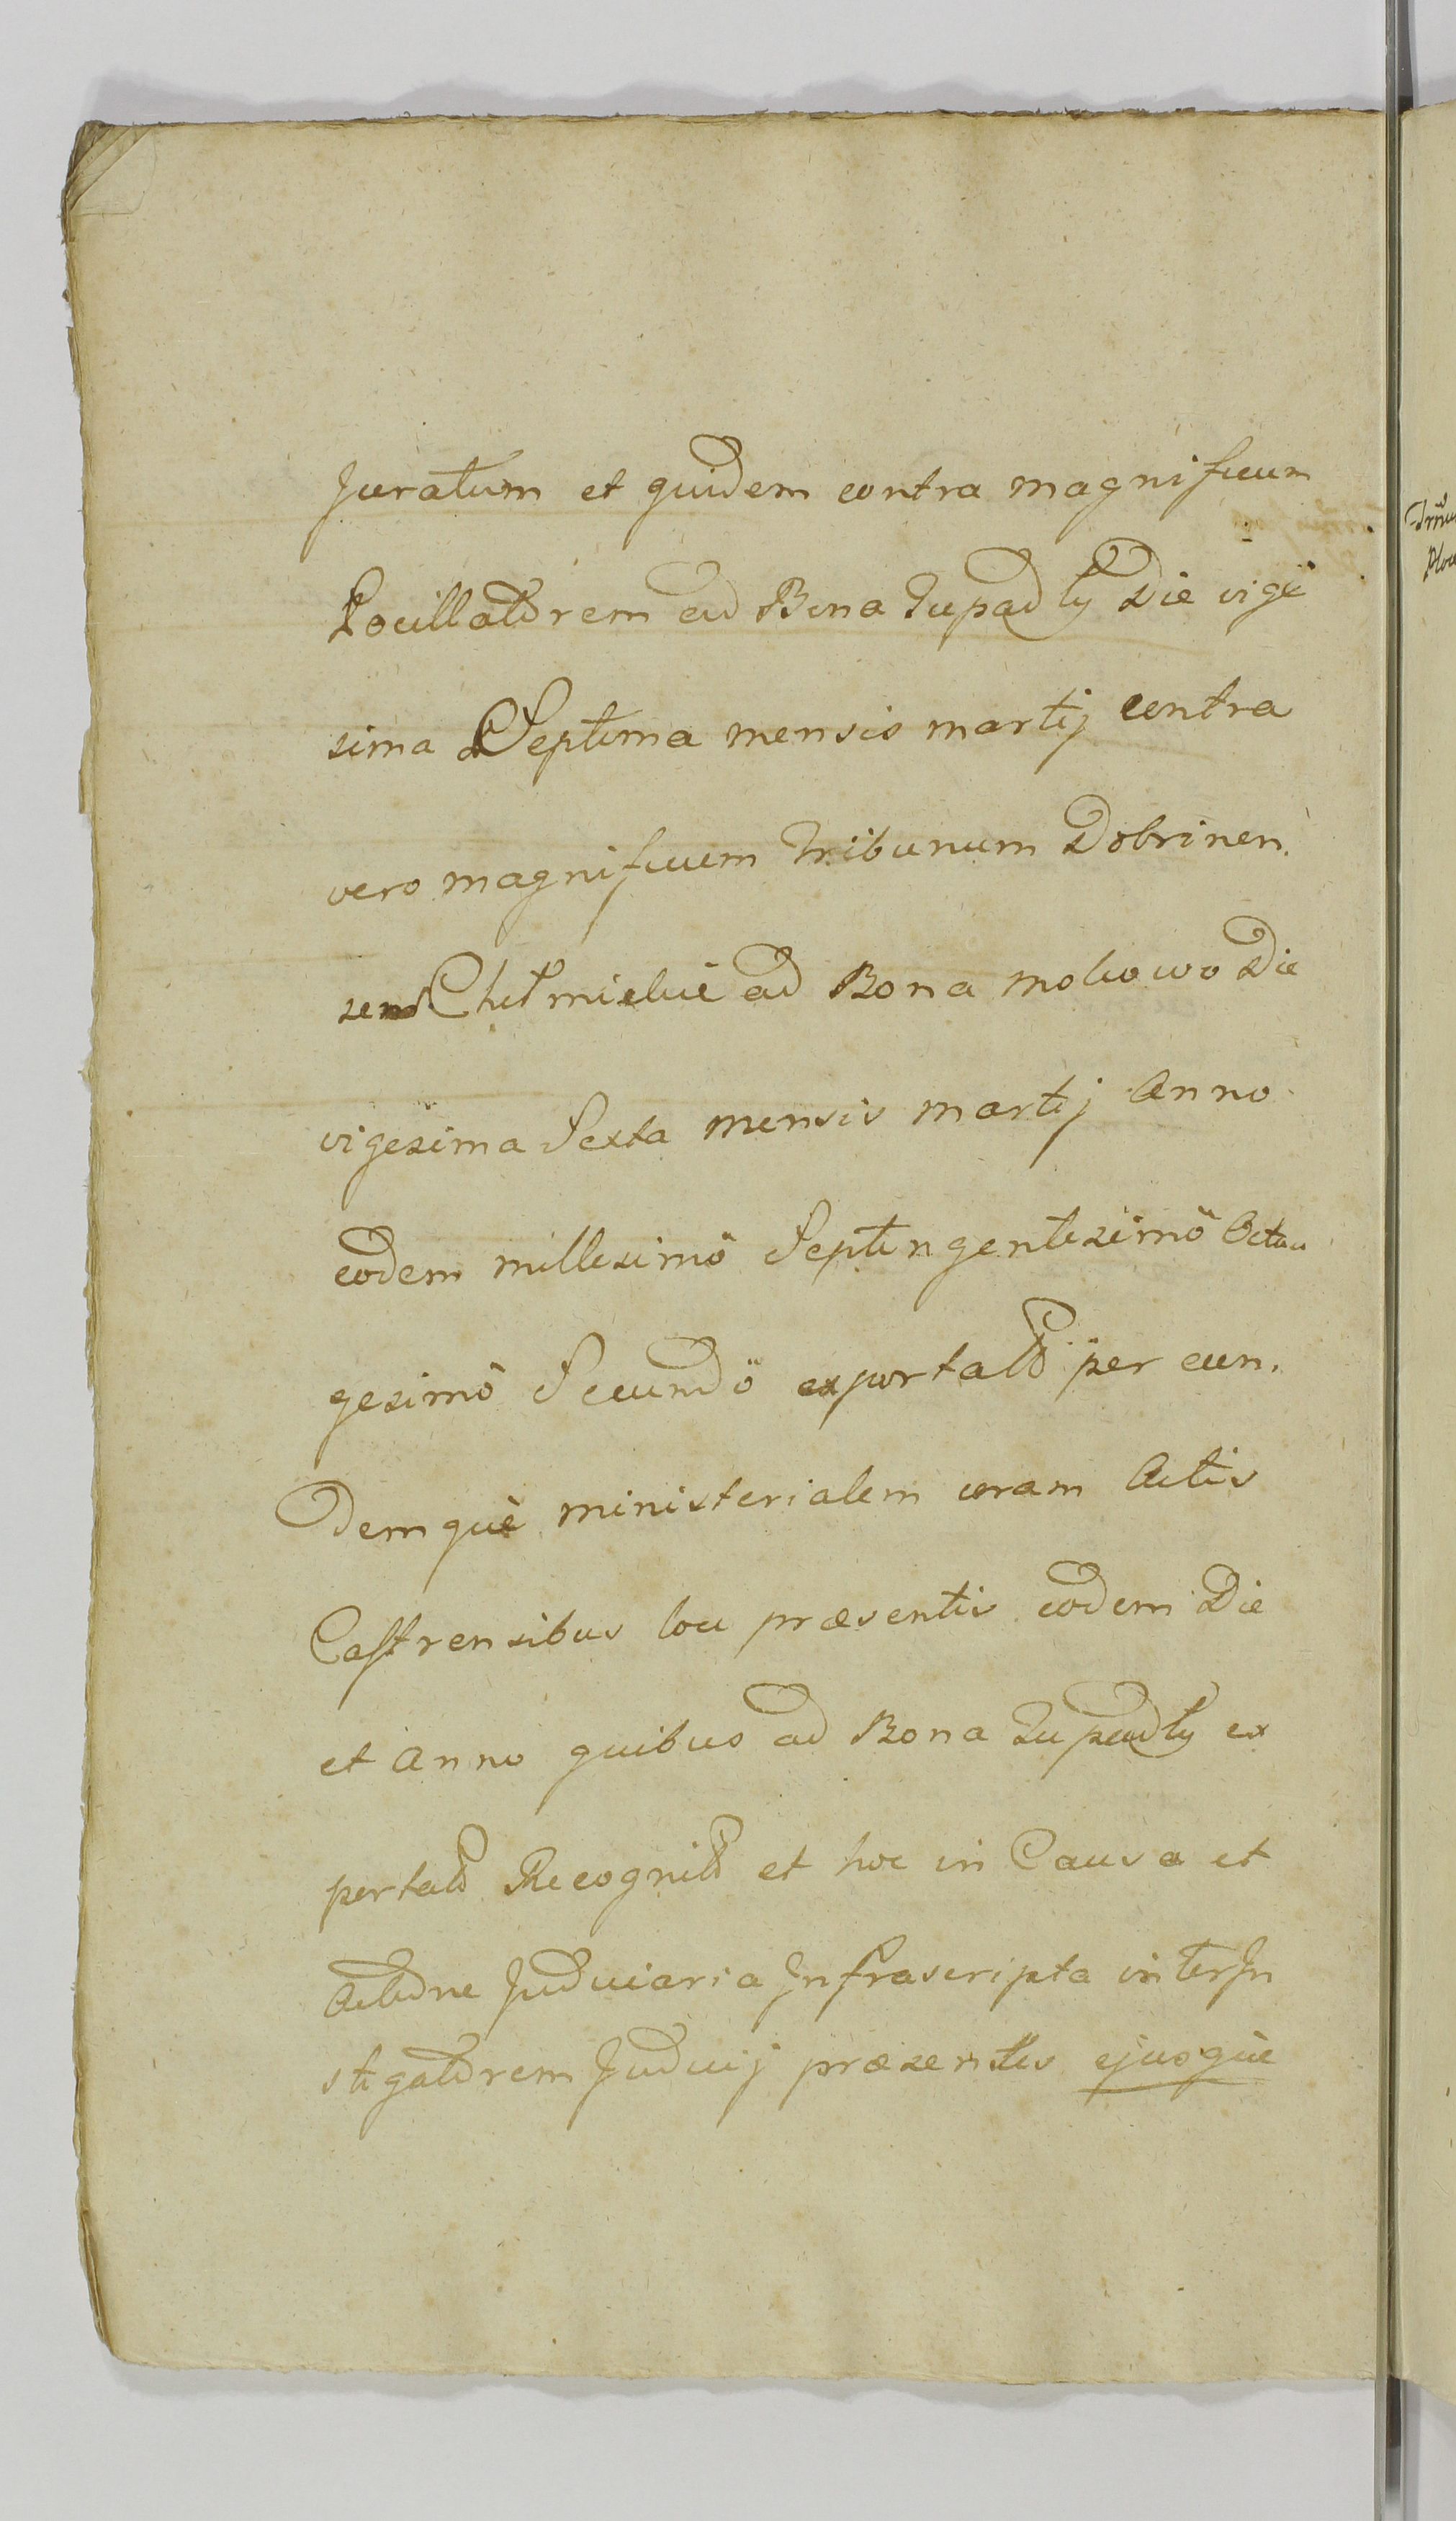 Juratum et quidem contra magnificum
Pocillatorem ad Bona Zupadły Die vige
sima Septima mensis martij contra
vero magnificum Tribunum Dobrinen.
sem ad Bona Die
vigesima Sexta mensis martij Anno
eodem millesimo Septingentesimo Octua
gesimo Secundo exportato per eun.
Demque ministerialem coram Actis
Castrensibus loci præsentis eodem Die
et Anno quibus ad Bona Zupadły ex
portato Recognito et hoc in Causa et
Actione Judiciaria Infrascripta inter In
stigatorem Judicij præsentis ejusque
Trnu